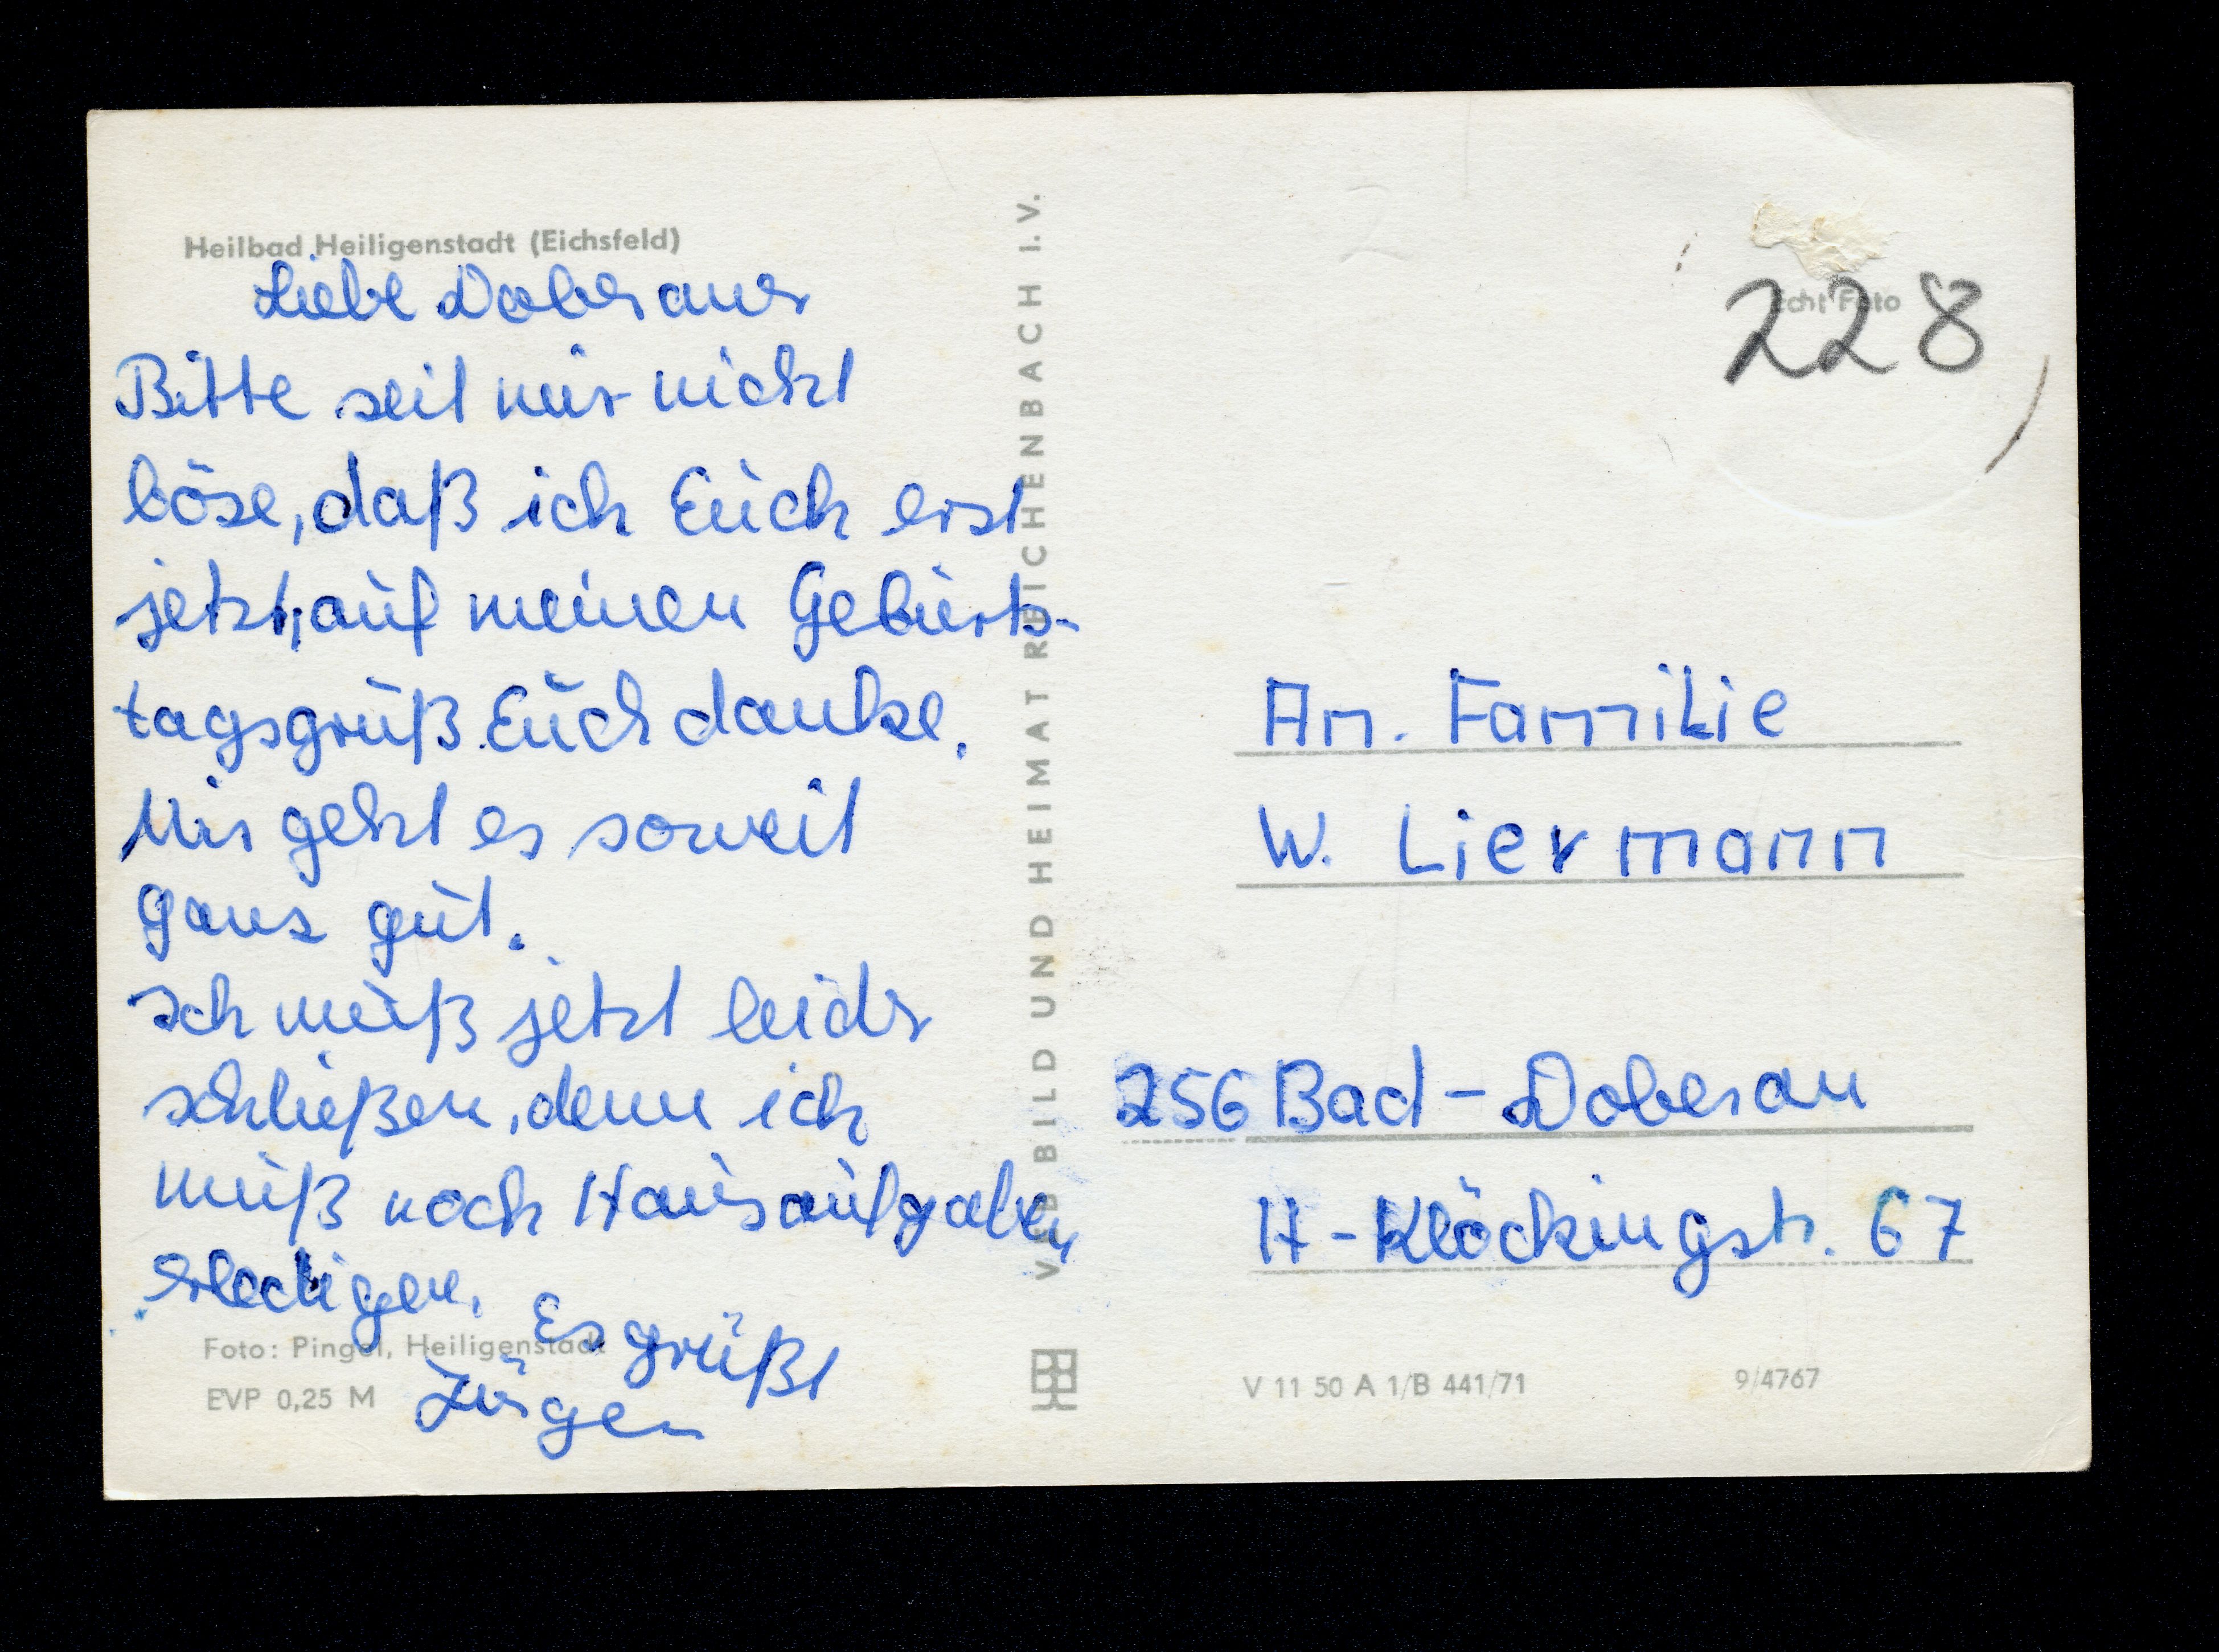 Heilbad Heiligenstadt (Eichsfeld)
Liebe Doberaner
Bitte seit mir nicht
böse, daß ich Euch erst
jetzt, auf meinen Geburts-
tagsgruß Euch danke.
Mir geht es soweit
ganz gut.
Ich muß jetzt leider
schließen, denn ich
muß noch Hausaufgaben
erledigen.
Es grüßt
Jürgen
Foto: Pingel, Heiligenstadt
EVP 0,25 M
VEB BILD UND HEIMAT REICHENBACH I. V.
Echt Foto
228
An. Familie
W. Liermann
256 Bad - Doberan
H - Klöckingstr. 67
V 11 50 A 1/B 441/71
9/4767